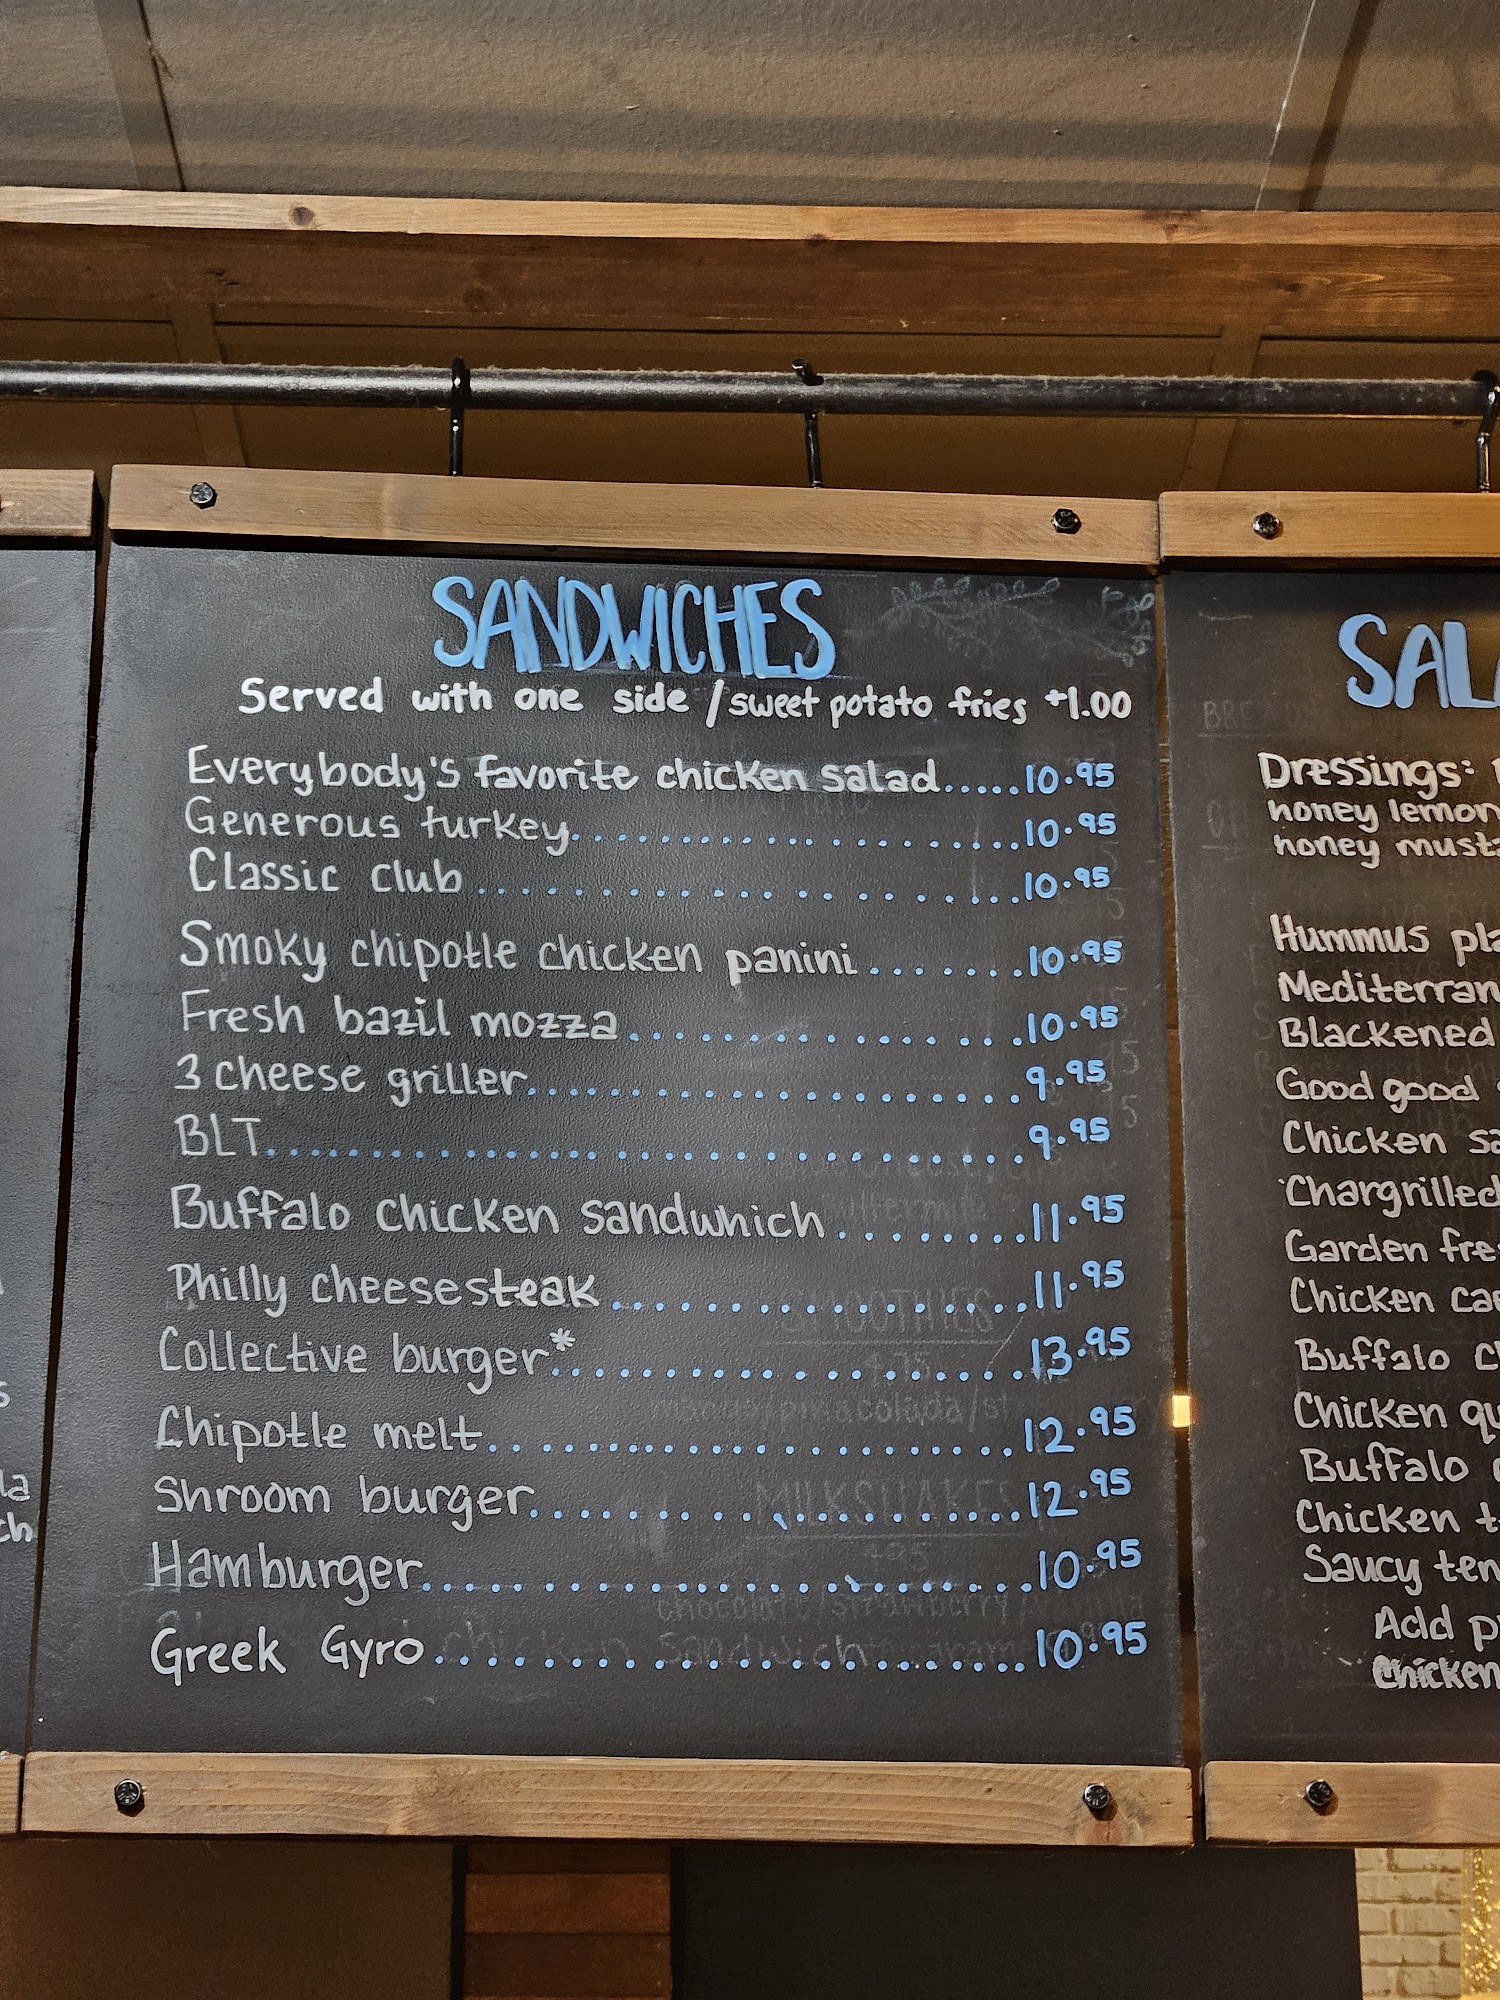 SANDWICHES
Served with one side / sweet potato fries +1.00
Everybody's favorite chicken salad.....10.95
Generous turkey....................10.95
Classic club....................10.95
Smoky chipotle chicken panini.......10.95
Fresh bazil mozza.................10.95
3 cheese griller......................9.95
BLT..............................9.95
Buffalo chicken sandwhich........11.95
Philly cheesesteak..................11.95
Collective burger*....................13.95
Chipotle melt........................12.95
Shroom burger......................12.95
Hamburger...........................10.95
Greek Gyro..........................10.95
SAL
Dressings:
honey lemon
honey must
Hummus pla
Mediterran
Blackened
Good good
Chicken sa
Chargrilled
Garden fre
Chicken cae
Buffalo ch
Chicken qu
Buffalo
Chicken t
Saucy ten
Add p
Chicken
SMOOTHIES
MILKSHAKES
la
ch